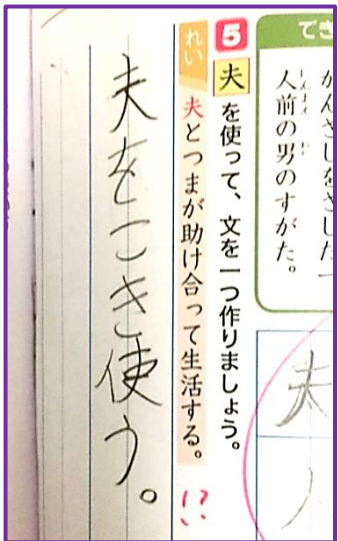 でき
かんざしをさした一
人前の男のすがた。
しんまえ
わ
夫
5 夫を使って、文を一つ作りましょう。
れい 夫とつまが助け合って生活する。
!?
夫をこき使う。